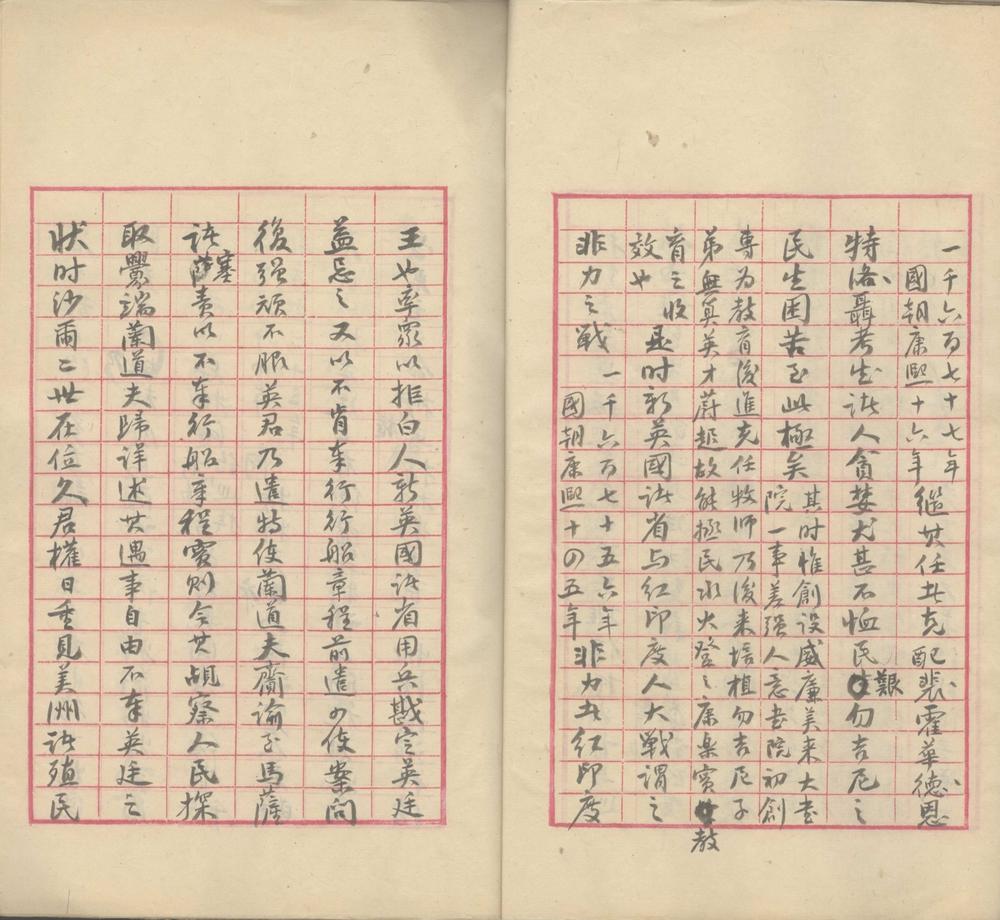 一千六百七十七年
國朝康熙十六年
繼其任者克配裴霍華德恩
特洛聶考出諸人貪婪尤甚不恤民艱勿吉尼之
民生困苦至此極矣
其时惟創設威廉美来大書
院一事差强人意書院初創
專为教育後進克任牧师乃後来培植勿吉尼子
弟無算英才蔚起故能拯民水火登之康樂實教
育之收
效也
是时新英國諸省与紅印度人大戰謂之
非力之戰
一千六百七十五六年
國朝康熙十四五年
非力者紅印度
王也率眾以拒白人新英國諸省用兵戡定英廷
益忌之又以不肯奉行行船章程前遣四使案问
後强頑不服英君乃遣特使蘭道夫齎諭至馬薩
諸塞責以不奉行船章程實則令其覘察人民探
取釁端蘭道夫歸详述其遇事自由不奉英廷之
狀时沙爾二世在位久君權日重見美洲諸殖民